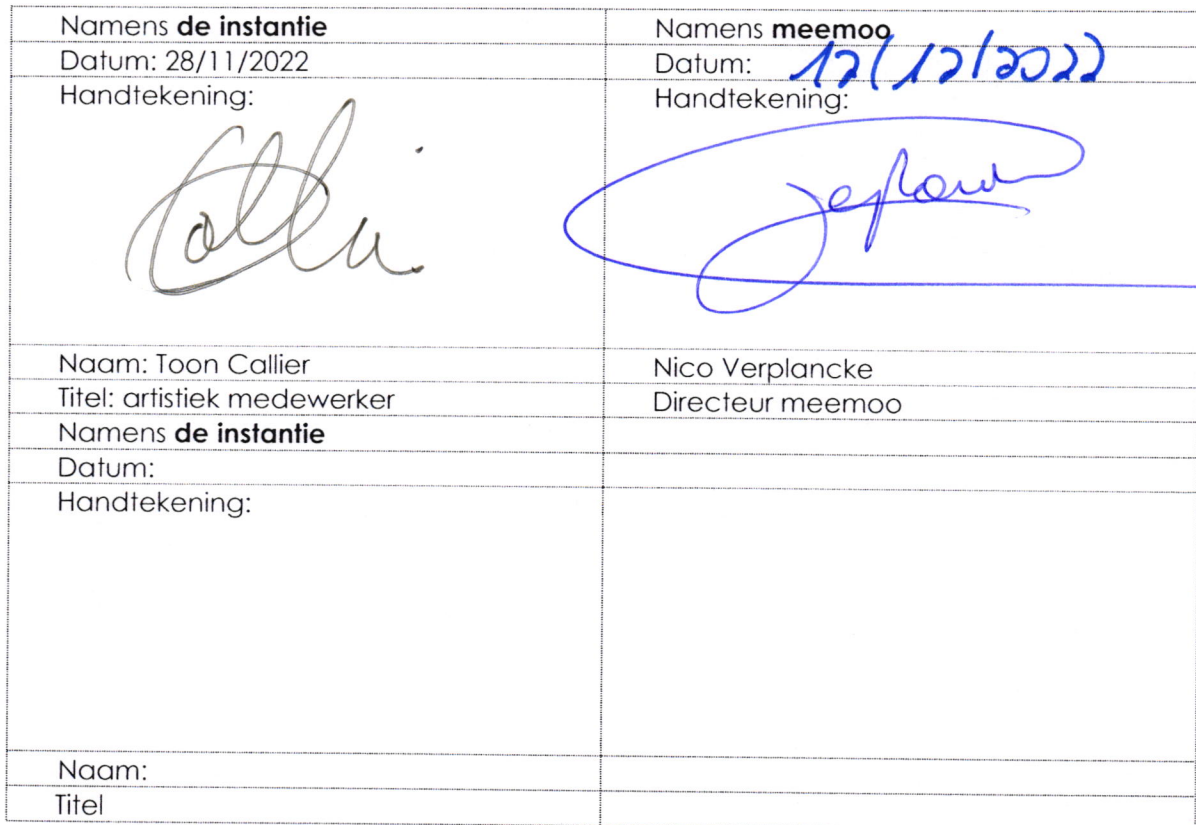 Namens de instantie
Namens meemoo
Datum: 28/11/2022
Datum: 12/12/2022
Handtekening:
Handtekening:
Naam: Toon Callier
Nico Verplancke
Titel: artistiek medewerker
Directeur meemoo
Namens de instantie
Datum:
Handtekening:
Naam:
Titel